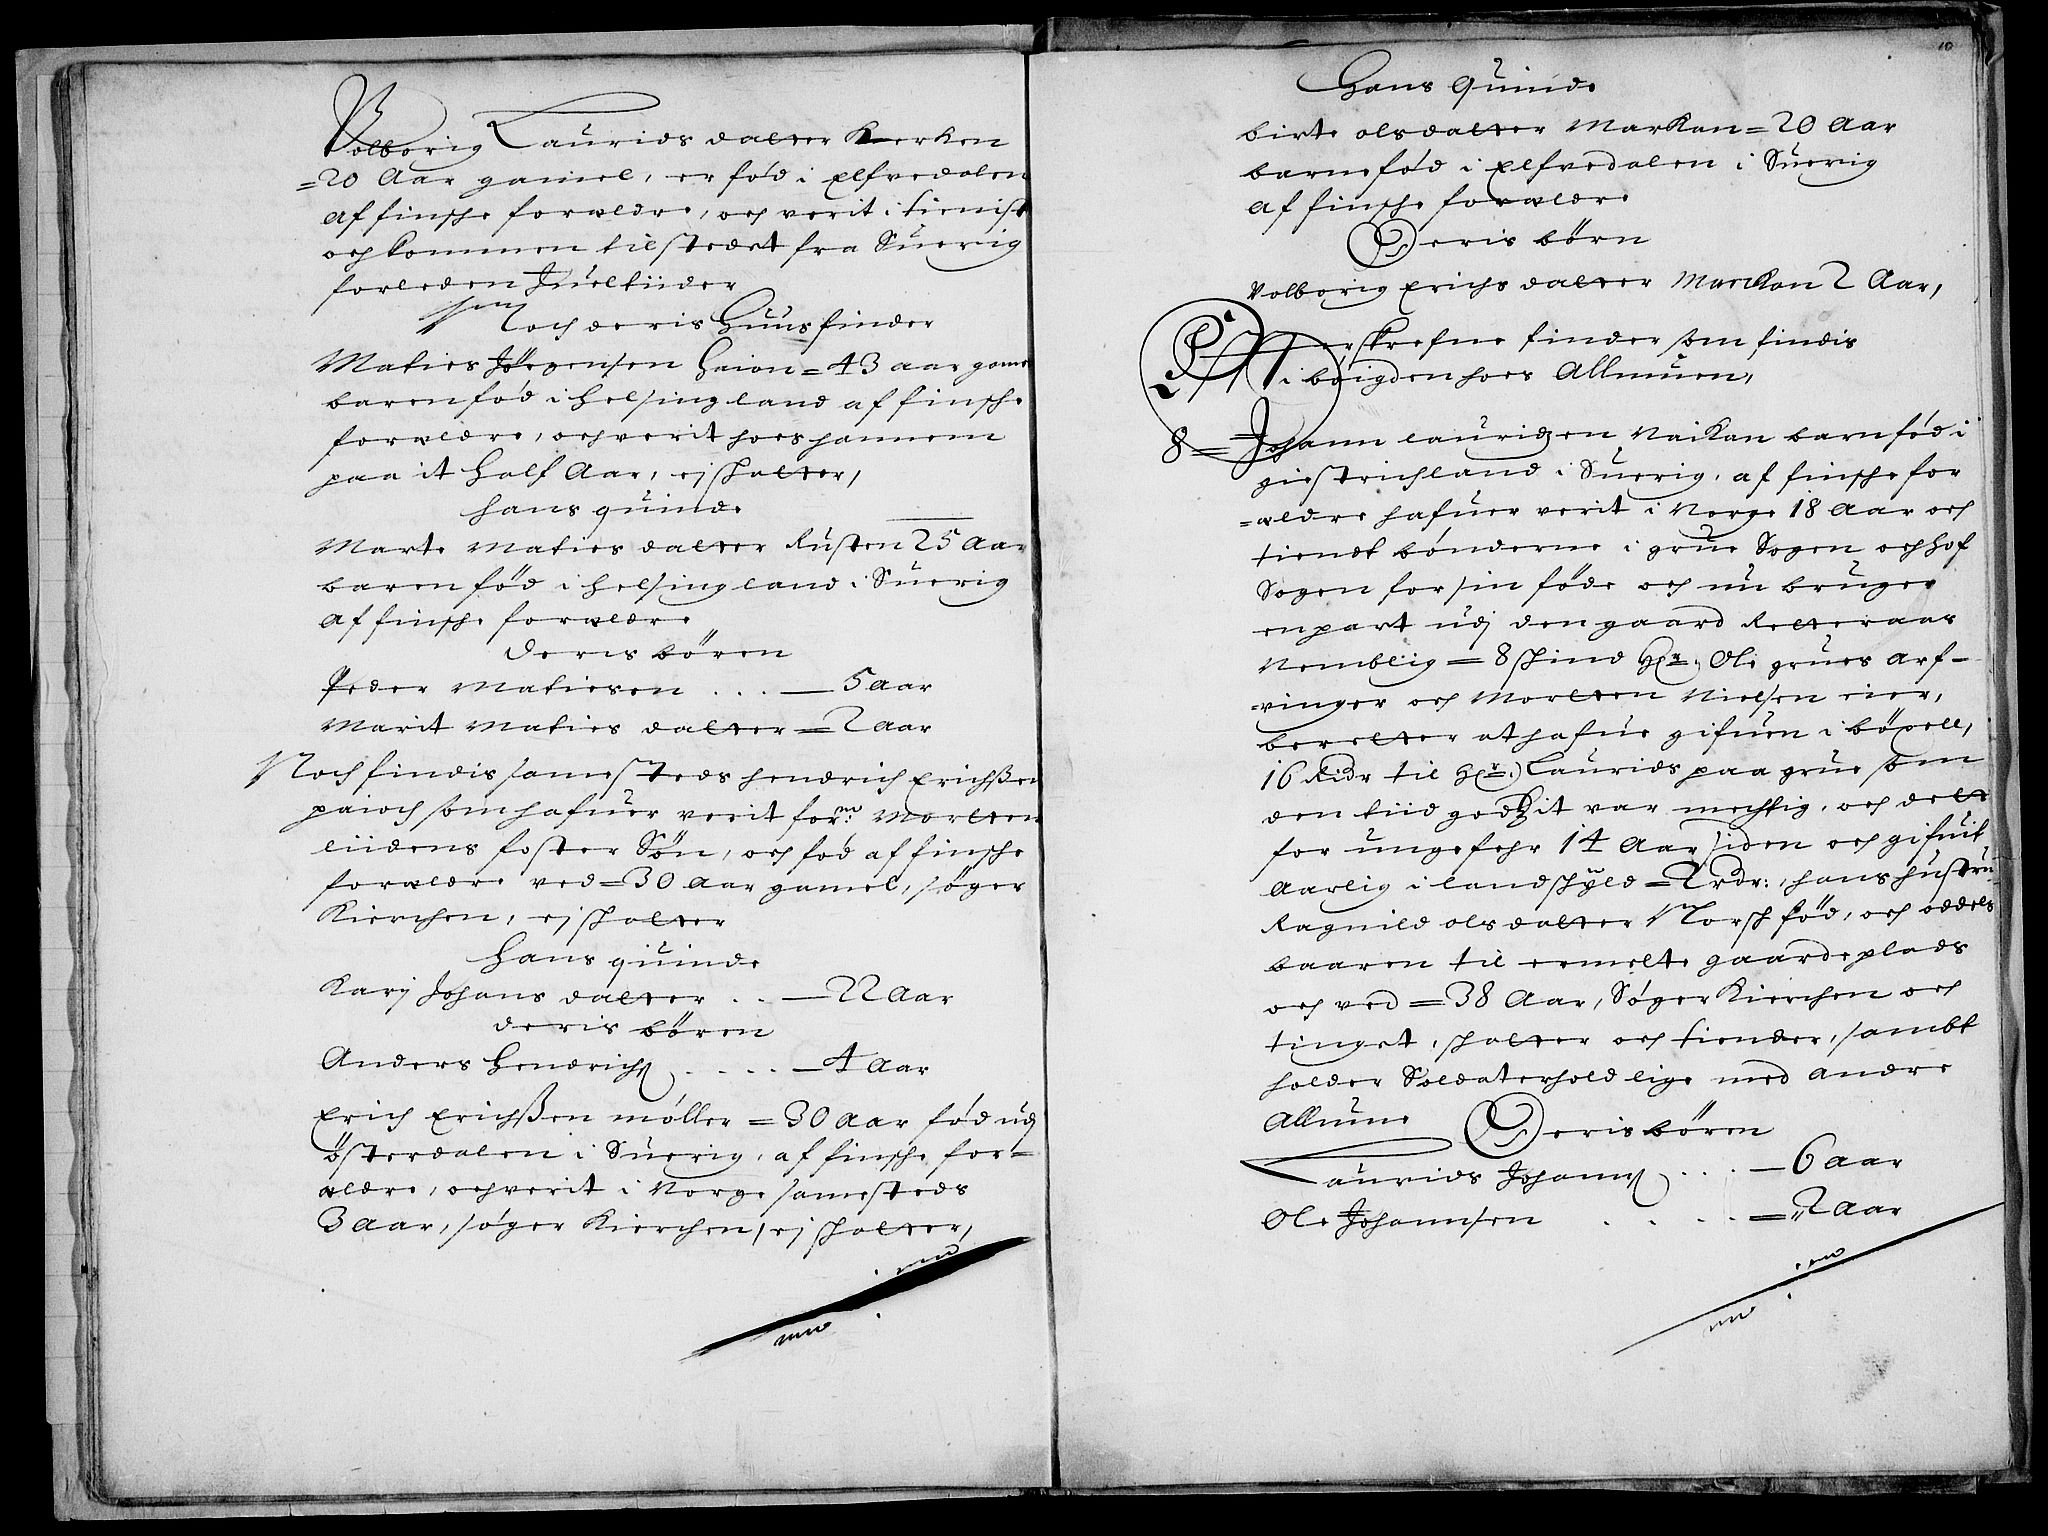 Volborig Laurids datter Kierken
=20 Aar gamel, er fød i Elfvedalen
af finsche forældre, och verit i tienist
och kommen til stedet fra Suerig
forleden Juelstiider
Noch deris Huusfinder
Maties Jörgensen Haion = 43 aar game
barenfød i Helsingland af finsche
forældre, och verit hoes hannem
paa it half Aar, ej schatter,
Hans quinde
Marte Maties datter Rusten 25 Aar
barenfød i Helsingland i Suerig
af finsche forældre
Deris bören
Peder Matiesen . . . — 5 aar
Marit Maties datter = 2 aar
Noch findis samesteds Hendrich Erichßen
paioch som hafuer verit for.m Morten
liidens foster Sön, och fød af finsche
forældre ved = 30 aar gamel, søger
Kierchen, ej schatter
Hans quinde
Karj Johans datter . . — 22 Aar
deris bören
Anders Hendrichs . . . . — 4 aar
Erich Erichßen møller = 30 aar fød udj
österdalen i Suerig, af finsche for=
ældre, och verit i Norge samesteds
3 aar, søger Kierchen, ej schatter,
10
Hans Quinde
birte olsdatter Markan = 20 Aar
barnefød i Elfvedalen i Suerig
af finsche forældre
Deris börn
Volborig Erichs datter Marckan 2 Aar,
Efterskrefne finder som findis
i böigden hoes Allmuen,
8 = Johann lauridzen Naikan barnfød i
giestrichland i Suerig, af finsche for
=ældre hafuer verit i Norge 18 Aar och
tiendt bønderne i grue Sogen och hof
Sogen for sin føde och nu bruger
en part udj den gaard Retteraas
Nemblig = 8 schind Hr. Ole grues arf-
-vinger och Morten Nielsen eier,
beretter at hafue gifuen i böxell,
16 Ridr til Hr. Laurids paa grue som
den tiid godzit var mechtig, och dets
for ungefehr 14 Aar siden och gifuit
Aarlig i landschyld = 2 rdr:, hans hustru
Ragnild olsdatter Norsch fød, och oddels
baaren til eemelte gaardeplads
och ved = 38 Aar, Søger Kierchen och
tinget, schatter och tiender, sambt
holder Soldaterhold lige med andre
Allmue Deris bören
Laurids Johans . . . — 6 aar
Ole Johannsen . . . . = 2 aar